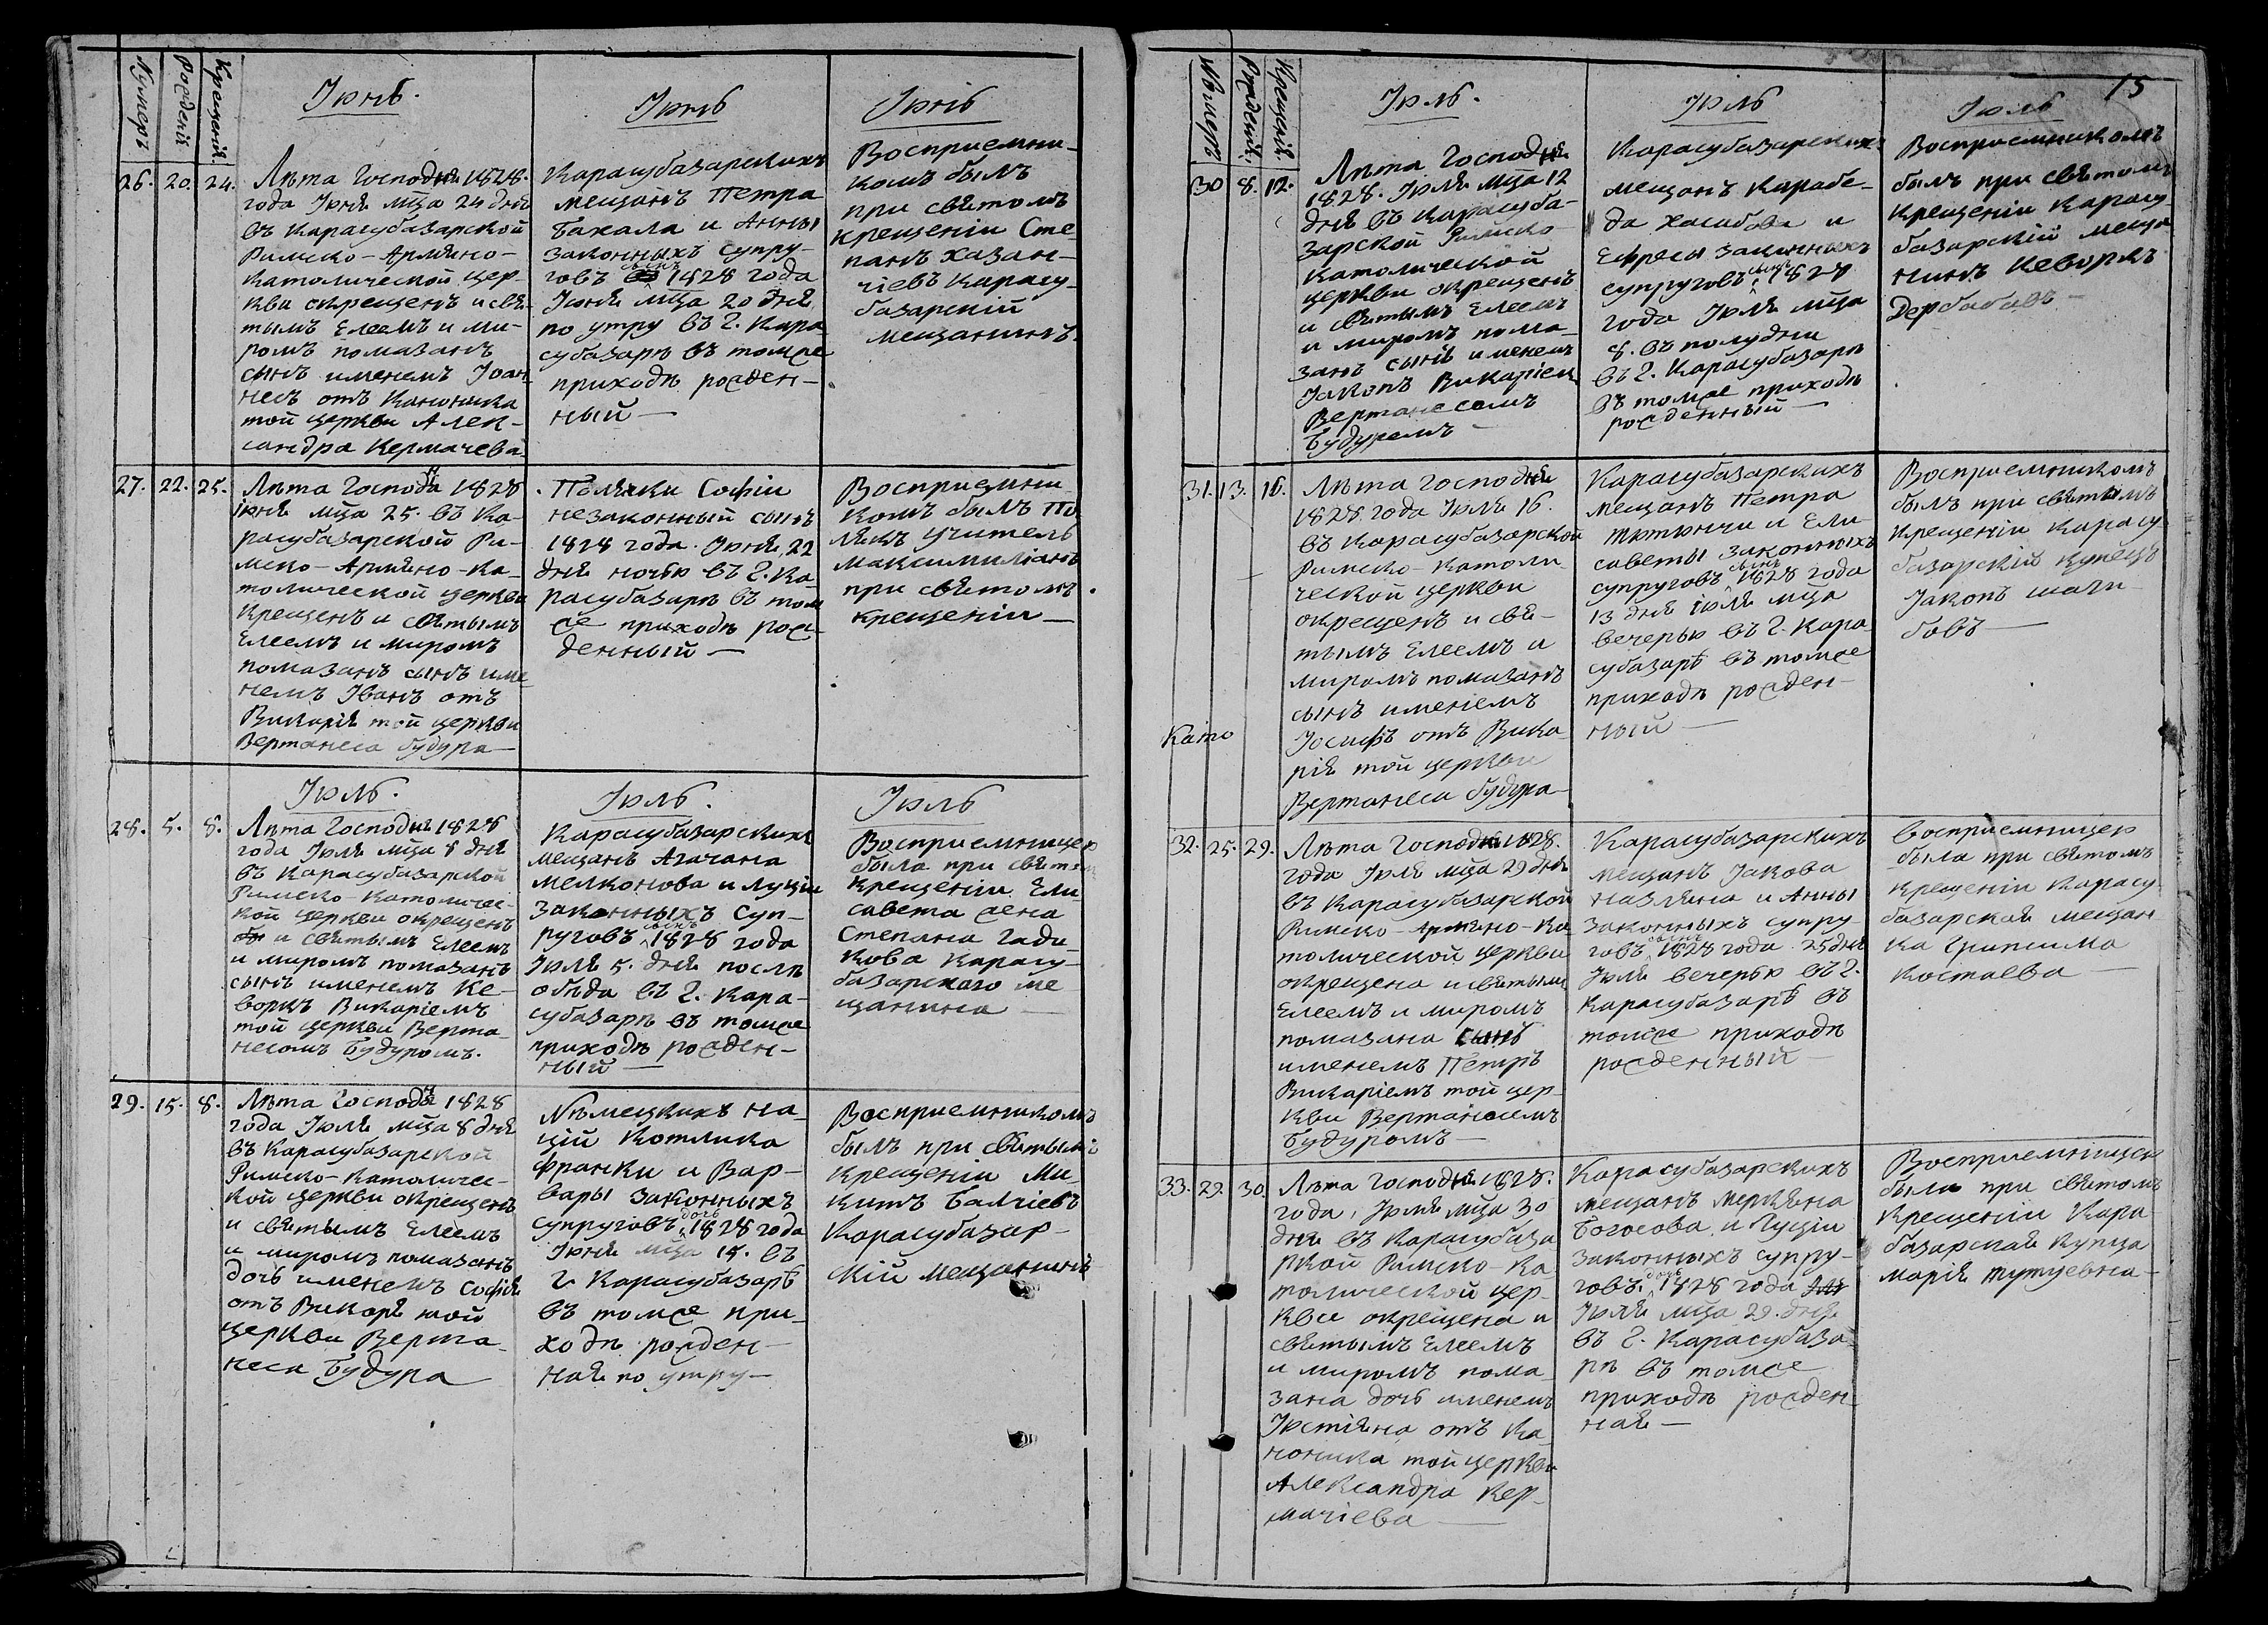 Нумеръ
Рожденій
Крещеній
Іюнь.
Іюнь
Іюнь
26. 20. 24.
Лѣта Господня 1828.
года Іюня мца 24 дня
въ Карасубазарской
Римско-Армяно-
Католической цер-
кви окрещенъ и свя-
тымъ Елеемъ и ми-
ромъ помазанъ
сынъ именемъ Іоан-
несъ отъ Каноника
той церкви Алек-
сандра Кермачева
Карасубазарскихъ
мещанъ Петра
Бакала и Анны
законныхъ супру-
говъ сынъ 1828 года
Іюня мца 20 дня
по утру въ г. Кара
субазарѣ въ томже
приходѣ рожден-
ный —
Восприемни-
комъ былъ
при святомъ
крещеніи Сте-
панъ Хазан-
чіевъ Карасу-
базарскій
мещанинъ.
27. 22. 25.
Лѣта Господня 1828
іюня мца 25. въ Ка-
расубазарской Ри-
мско-Армяно-Ка-
толической церкви
крещенъ и святымъ
Елеемъ и миромъ
помазанъ сынъ име-
немъ Іванъ отъ
Викарія той церкви
Вертанеса Будура —
Полячки Софіи
незаконный сынъ
1828 года. Іюня 22
дня ночью въ г. Ка
расубазарѣ въ том
же приходѣ рож-
денный —
Восприемни
комъ былъ По
лякъ учитель
Максимиліанъ
при святомъ
крещеніи —
Іюль.
Іюль.
Іюль
28. 5. 8.
Лѣта Господня 1828
года Іюля мца 8 дня
въ Карасубазарской
Римско-Католичес-
кой церкви окрещенъ
и святымъ Елеемъ
и миромъ помазанъ
сынъ именемъ Ке-
воркъ Викаріемъ
той церкви Верта-
несомъ Будуромъ.
Карасубазарскихъ
мещанъ Агачана
Мелконова и Луціи
законныхъ суп-
руговъ сынъ 1828 года
Іюля 5. дня послѣ
обѣда въ г. Кара-
субазарѣ въ томже
приходѣ рожден-
ный —
Восприемницею
была при святом
крещеніи Ели
савета жена
Степана Гади-
кова Карасу-
базарского ме
щанина —
29. 15. 8.
Лѣта Господня 1828
года Іюля мца 8 дня
въ Карасубазарской
Римско-Католичес-
кой церкви окрещенъ
и святымъ Елеемъ
и миромъ помазанъ
дочь именемъ Софія
отъ Викарія той
церкви Верта-
неса Будура
Нѣмецкихъ на-
цій Котлика
Франки и Вар-
вары законныхъ
супруговъ дочь 1828 года
Іюня мца 15. въ
г. Карасубазарѣ
въ томже при-
ходѣ рожден-
ная по утру —
Восприемникомъ
былъ при святымъ
крещеніи Ми-
китъ Балчіевъ
Карасубазар-
скій мещанинъ
15
Нумеръ
Рожденій.
Крещеній.
Іюль.
Іюль
Іюль
30 8. 12.
Лѣта Господня
1828. Іюля мца 12
дня въ Карасуба-
зарской Римско-
католической
церкви окрещенъ
и святымъ Елеемъ
и миромъ пома-
занъ сынъ именем
Јакопъ Викаріем
Вертанесомъ
Будуремъ —
Карасубазарскихъ
мещанъ Карабе-
да Хасабова и
Ефресы законныхъ
супруговъ сынъ 1828
года Іюля мца
8. въ полудни
въ г. Карасубазарѣ
въ томже приходѣ
рожденный —
Восприемникомъ
былъ при святомъ
крещеніи Карасу-
базарскій меща
нинъ Кеворкъ
Дербабовъ —
31. 13. 16.
Лѣта Господня
1828. года Іюля 16.
въ Карасубазарской
Римско-Католи-
ческой церкви
окрещенъ и свя-
тымъ Елеемъ и
миромъ помазанъ
сынъ именемъ
Іосифъ отъ Вика-
рія той церкви
Вертанеса Будура —
Карасубазарскихъ
мещанъ Петра
Тютюнчи и Ели-
саветы законныхъ
супруговъ сынъ 1828 года
13 дня іюля мца
вечерью въ г. Кара-
субазарѣ въ томже
приходѣ рожден-
ный —
Восприемникомъ
былъ при святымъ
крещеніи Карасу
базарскій купецъ
Јакопъ Шаги-
бовъ —
Като
32. 25. 29.
Лѣта Господня 1828.
года Іюля мца 29 дня
въ Карасубазарской
Римско-Армяно-Ка
толической церкви
окрещена и святымъ
Елеемъ и миромъ
помазана сынъ
именемъ Петръ
Викаріемъ той цер-
кви Вертанесемъ
Будуромъ —
Карасубазарскихъ
мещанъ Јакова
Назляна и Анны
законныхъ супру-
говъ сынъ 1828 года 25 дня
Іюля вечерью въ г.
Карасубазарѣ въ
томже приходѣ
рожденный —
Восприемницею
была при святомъ
крещеніи Карасу-
базарская мещан-
ка Грипсима
Костаева —
33. 29. 30
Лѣта Господня 1828.
года, Іюля мца 30
дня въ Карасубаза
ркой Римско-Ка-
толической цер-
кви окрещена и
святымъ Елеемъ
и миромъ пома-
зана дочь именемъ
Јустіяна отъ Ка-
ноника той церкви
Александра Кер-
мачіева —
Карасубазарскихъ
мещанъ Меркяна
Богосова и Луціи
законныхъ супру-
говъ. дочь 1828 года
Іюля мца 29. дня
въ г. Карасубаза-
рѣ въ томже
приходѣ рожден-
ная —
Восприемницею
была при святомъ
крещеніи Кара-
базарская купца
Марія Тутуевна —